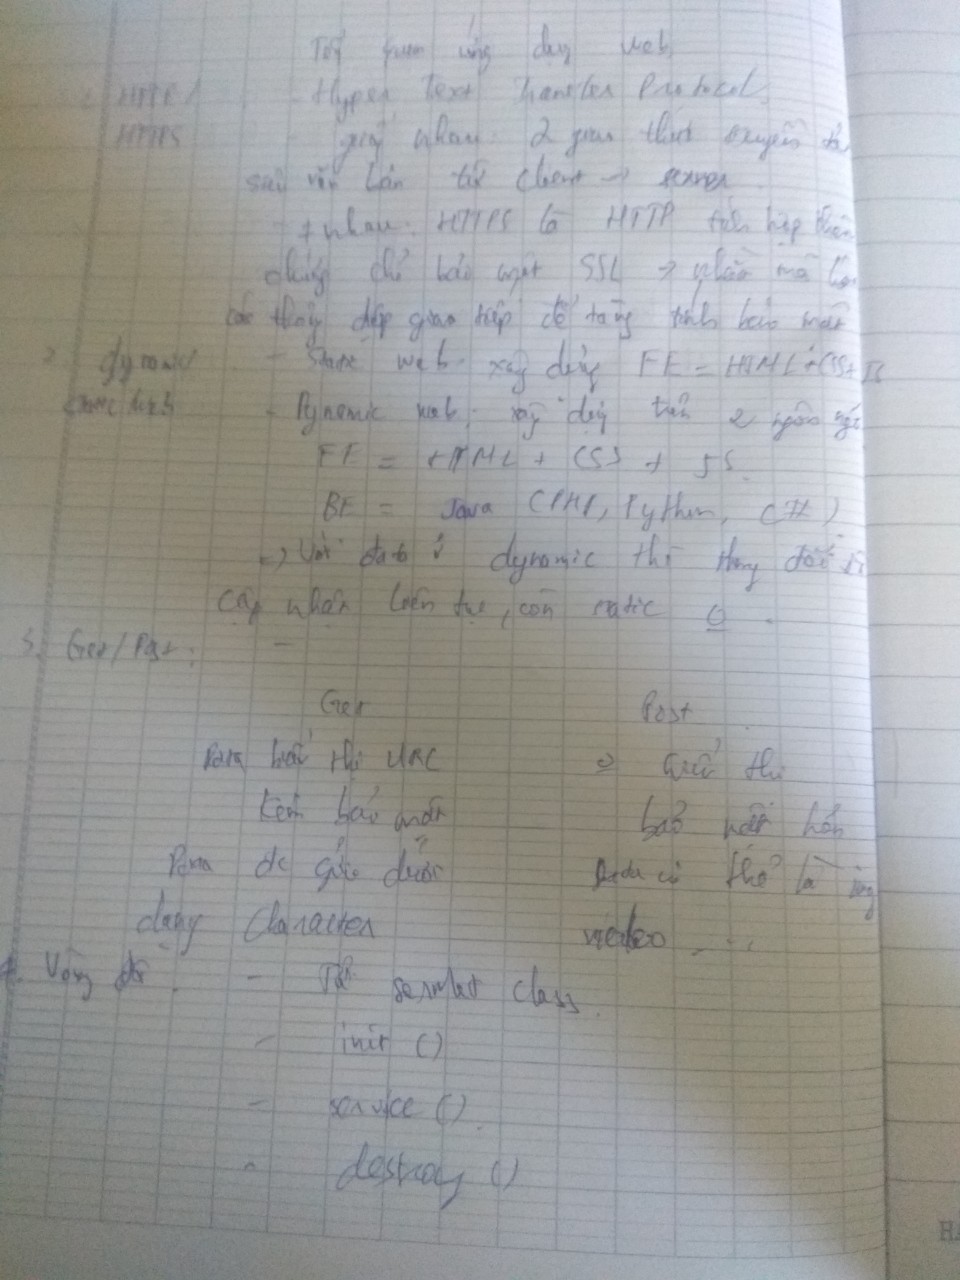 Tổng quan ứng dụng web
HTTP / - Hyper Text Transfer Protocol.
HTTPS - giống nhau: 2 giao thức truyền tải
siêu văn bản từ client → server
- ≠ nhau: HTTPS là HTTP tích hợp thêm
chứng chỉ bảo mật SSL → nhằm mã hóa
các thông điệp giao tiếp để tăng tính bảo mật
2. dynamic - Static web: xây dựng FE = HTML + CSS + JS
- Dynamic web: xây dựng trên 2 ngôn ngữ
FE = HTML + CSS + JS.
BE = Java (PHP, Python, C#)
=> Với data ở dynamic thì thay đổi
cập nhật liên tục, còn static
3. Get/Post: -
Get Post
Para hiển thị URL
kém bảo mật bảo mật hơn
Para đc gửi dưới Data có thể là
dạng Character video ...
4. Vòng đời - Tải servlet class.
- init ()
- service ().
- destroy ()